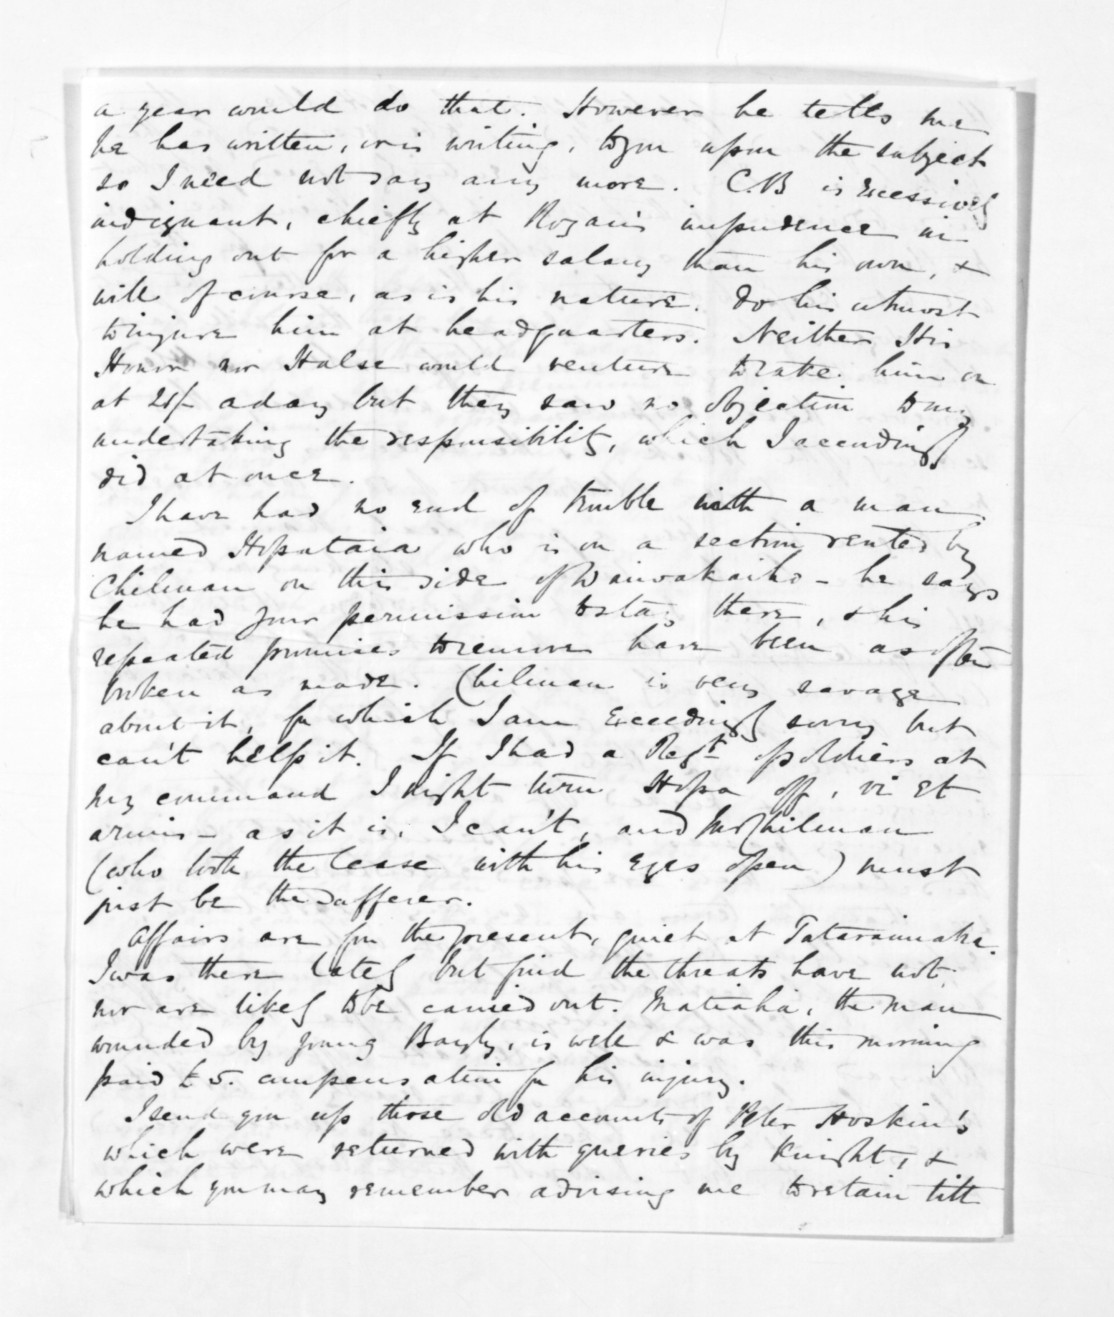 a year would do that. However he tells me
he has written, or is writing, to you upon the subject
so I need not say any more. CB is excessively
indignant, chiefly at Rogan's impudence in
holding out for a higher salary than his own, &
will of course, as is his nature, do his utmost
to injure him at headquarters. Neither His
Honor nor Halse would venture to take him on
at 21/- a day but they saw no objection to my
undertaking the responsibility, which I accordingly
did at once.
I have had no end of trouble with a man
named Hopataia who is on a section rented by
Chilman on this side of Waiwakaiho - he says
he had your permission to stay there, & his
repeated promises to remove have been as often
broken as made. Chilman is very savage
about it, for which I am exceedingly sorry but
can't help it. If I had a Regt of soldiers at
my command I might turn Hopa off, vi et
armis - as it is, I can't, and Mr Chilman
(who took the lease with his eyes open) must
just be the sufferer.
Affairs are for the present, quiet at Tataraimaka.
I was there lately but find the threats have not,
nor are likely to be carried out. Matiaha, the man
wounded by young Bayly, is well & was this morning
paid £5. compensation for his injury.
I send you up those old accounts of Peter Hoskin's
which were returned with queries by Knight, &
which you may remember advising me to retain till